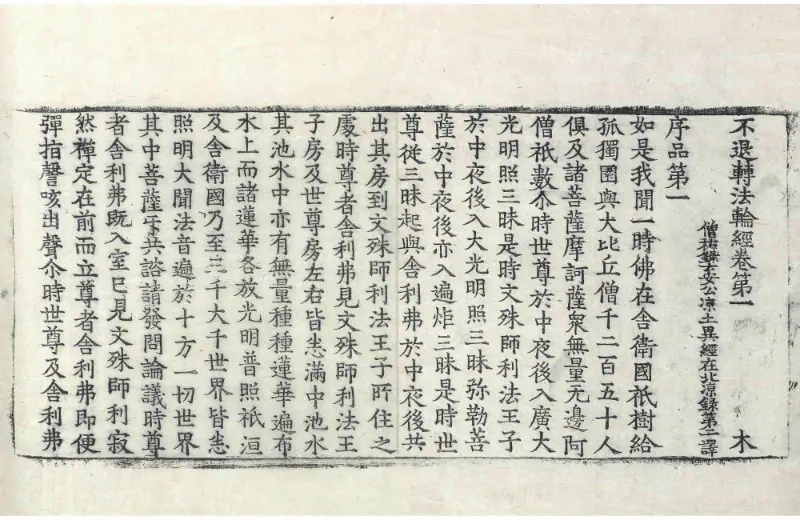 不退轉法輪經卷第一 木
僧祐錄云安公涼土異經在北涼錄第二譯
序品第一
如是我聞一時佛在舍衛國祇樹給
孤獨園與大比丘僧千二百五十人
俱及諸菩薩摩訶薩眾無量无邊阿
僧祇數尒時世尊於中夜後入廣大
光明照三昧是時文殊師利法王子
於中夜後入大光明照三昧弥勒菩
薩於中夜後亦入遍炤三昧是時世
尊從三昧起與舍利弗於中夜後共
出其房到文殊師利法王子所住之
處時尊者舍利弗見文殊師利法王
子房及世尊房左右皆悉滿中池水
其池水中亦有無量種種蓮華遍布
水上而諸蓮華各放光明普照祇洹
及舍衛國乃至三千大千世界皆悉
照明大聞法音遍於十方一切世界
其中菩薩乎共諮請發問論議時尊
者舍利弗既入室已見文殊師利寂
然禪定在前而立尊者舍利弗即便
彈指謦咳出聲尒時世尊及舍利弗